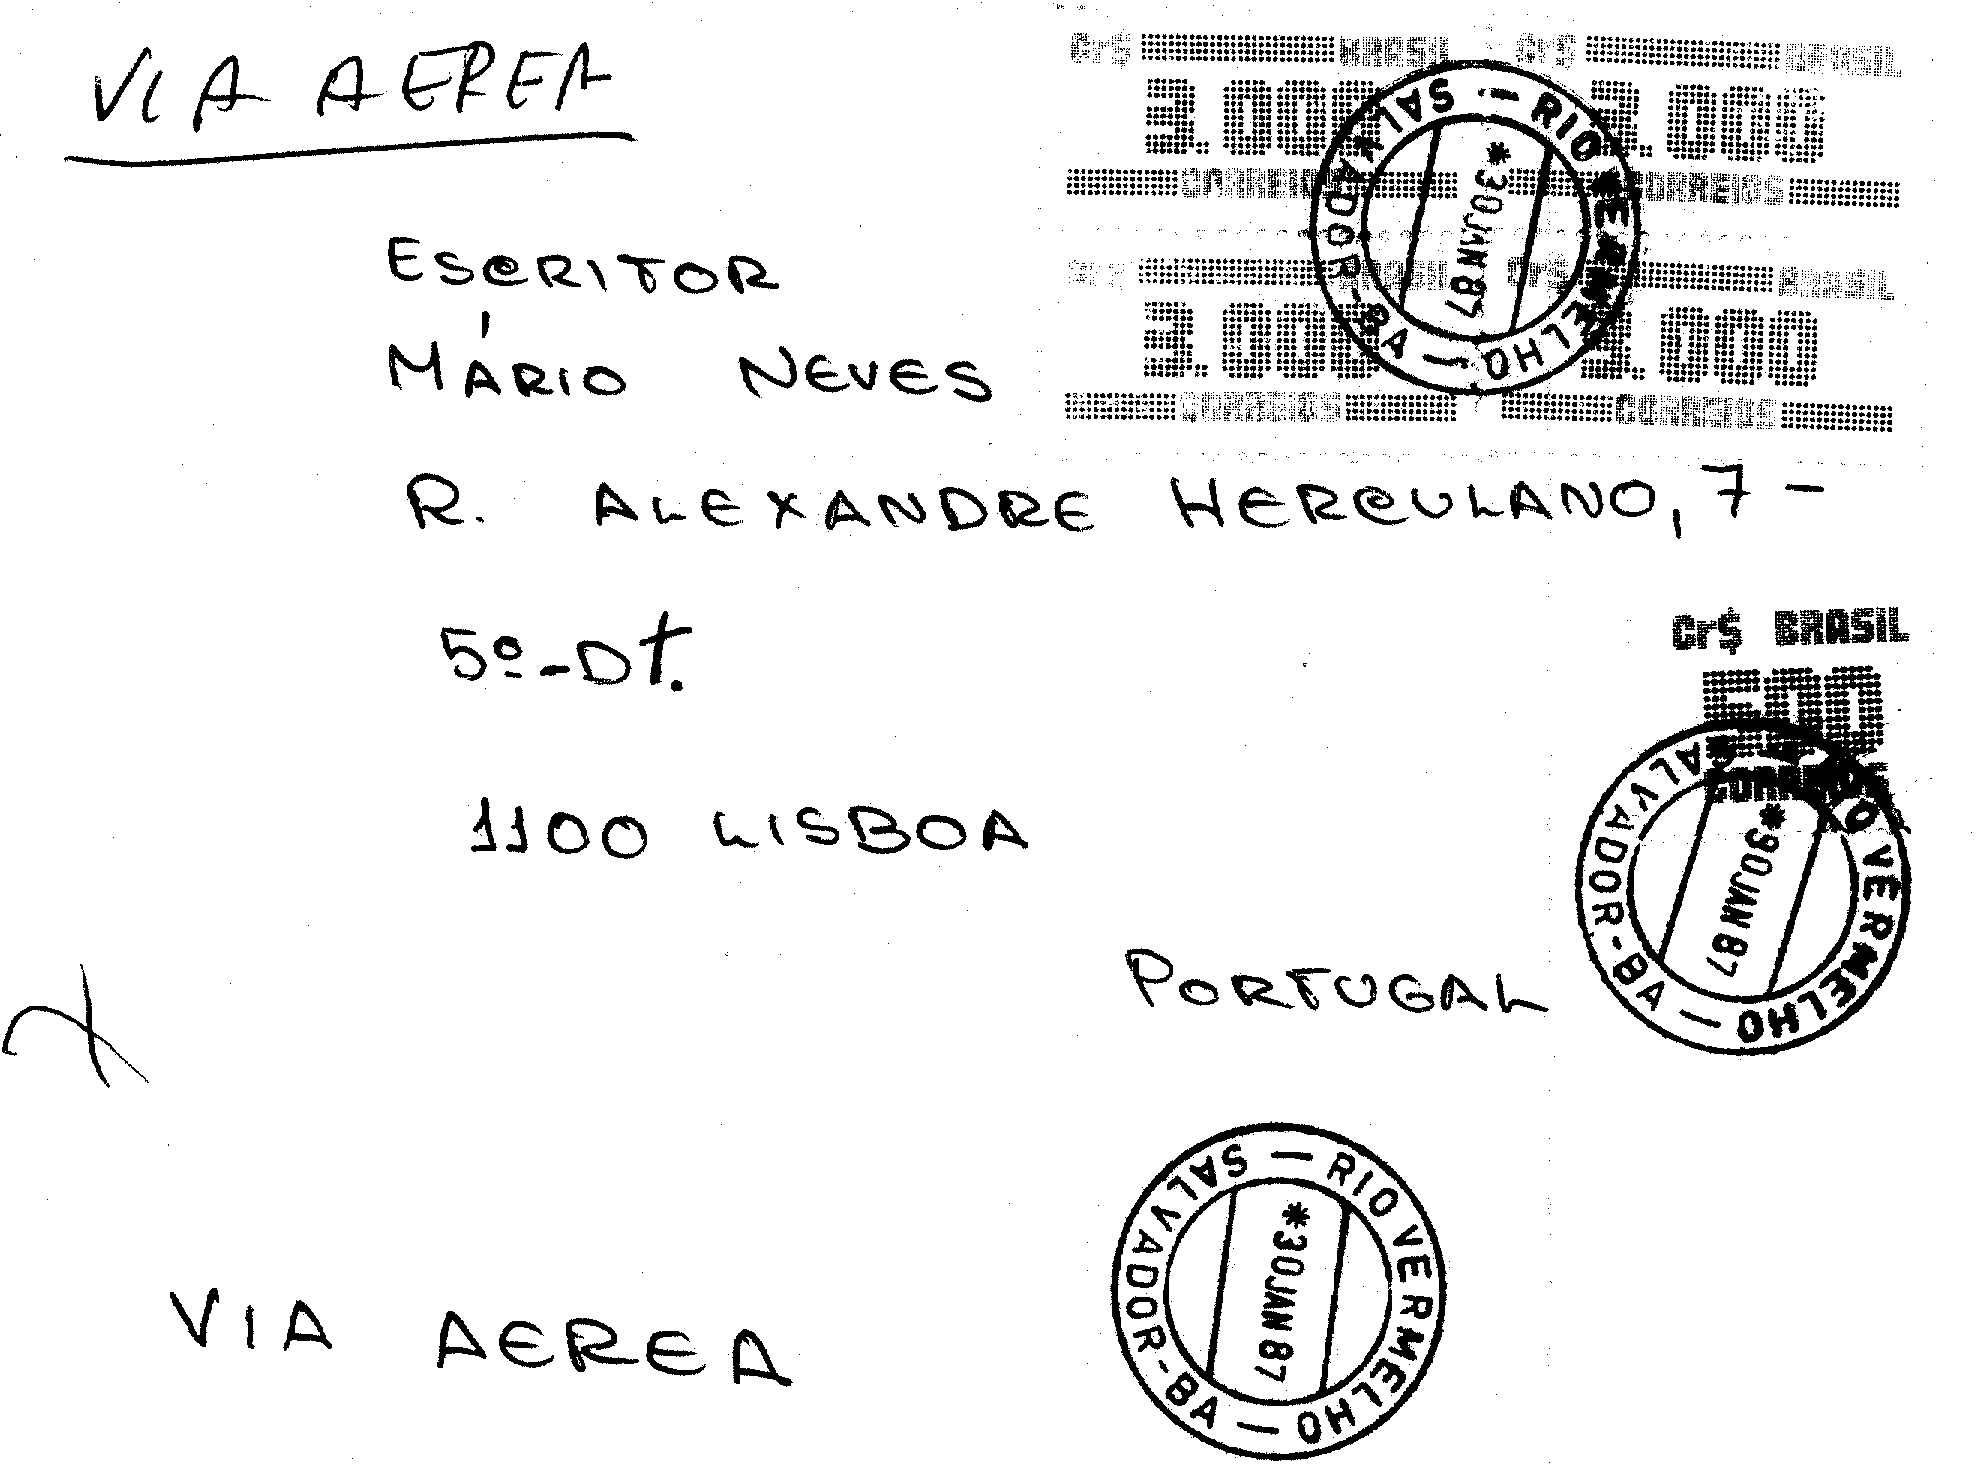 VIA AEREA
Cr$ BRASIL Cr$ BRASIL
3.000 3.000
CORREIOS CORREIOS
Cr$ BRASIL Cr$ BRASIL
3.000 3.000
CORREIOS CORREIOS
SALVADOR-BA — RIO VERMELHO —
*30JAN87
ESCRITOR
MÁRIO NEVES
R. ALEXANDRE HERCULANO, 7 -
5º-Dt.
Cr$ BRASIL
500
CORREIOS
SALVADOR-BA — RIO VERMELHO
*30JAN87
1100 LISBOA
PORTUGAL
SALVADOR-BA — RIO VERMELHO —
*30JAN87
VIA AEREA